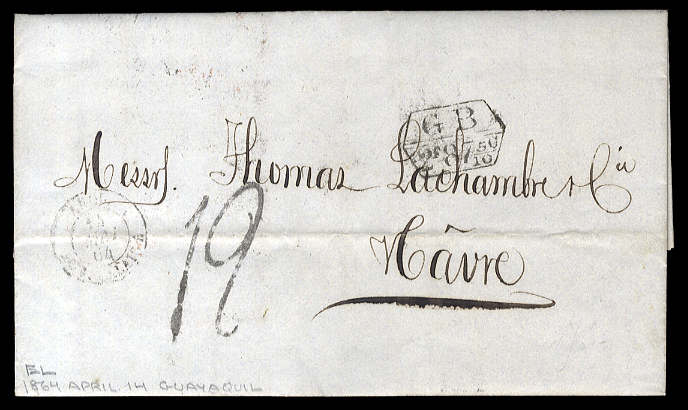 GB
Messrs. Thomas Lachambre & Cie
Hâvre
19
EL
1864 APRIL 14 GUAYAQUIL